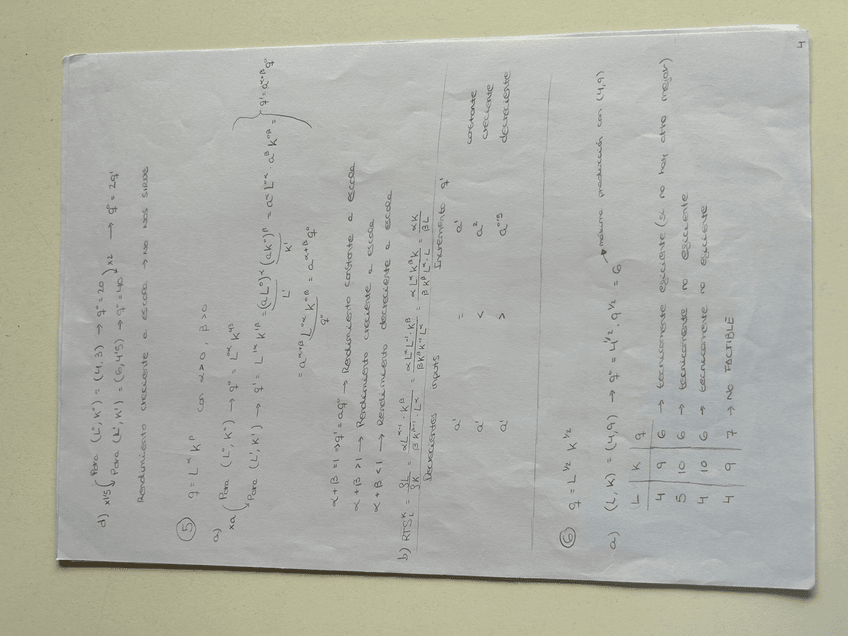 d) x1'5 Para (L⁰, K⁰) = (4, 3) → q⁰ = 20
Para (L', K') = (6, 4'5) → q⁰ = 40 x2 → q⁰ = 2q'
Rendimiento creciente a escala → NO NOS SIRVE
⑤ q = L^α K^β con α>0, β>0
a)
xa Para (L⁰, K⁰) → q⁰ = L^0α K^0β
Para (L', K') → q' = L'^α K'^β = (aL⁰)^α (aK⁰)^β = a^α L^0α · a^β K^0β =
L' K'
= a^α+β L^0α K^0β = a^α+β q⁰
q⁰
q' = a^α+β q⁰
α + β = 1 ⇒ q' = aq⁰ → Rendimiento constante a escala
α + β > 1 → Rendimiento creciente a escala
α + β < 1 → Rendimiento decreciente a escala
b) RTS^K_L = δL/δK = αL^α-1 · K^β / βK^β-1 · L^α = αL^α L^-1 · K^β / βK^β K^-1 L^α = αL^α K^β K / βK^β L^α · L = αK / βL
inputs Incremento q'
a' = a' constante
a' < a² creciente
a' > a^0'5 decreciente
⑥ q = L^1/2 K^1/2
a) (L, K) = (4, 9) → q⁰ = 4^1/2 · 9^1/2 = 6 → máxima producción con (4,9)
L K q
4 9 6 → tecnicamente eficiente (si no hay otro mejor)
5 10 6 → tecnicamente no eficiente
4 10 6 → tecnicamente no eficiente
4 9 7 → NO FACTIBLE
4